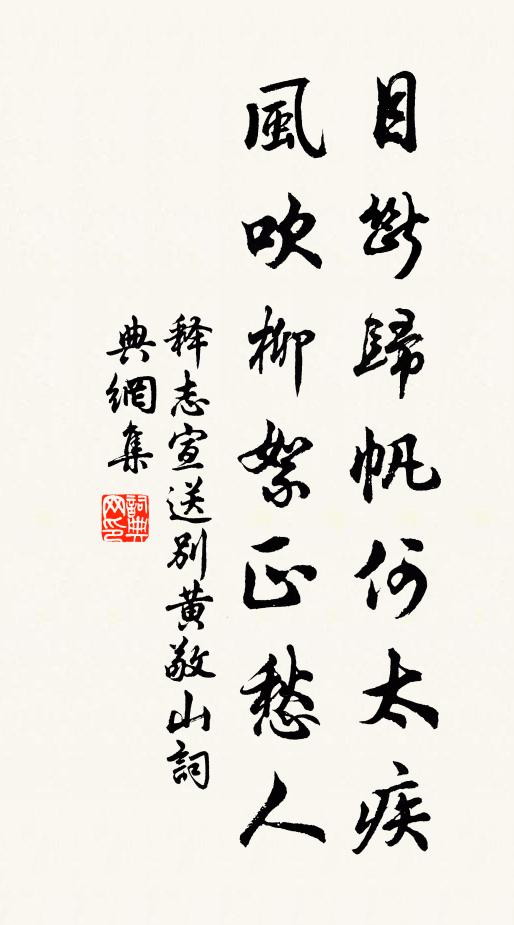 目斷歸帆何太疾
風吹柳絮正愁人
释志宣送别黄敬山詞
典網集
詞典网印